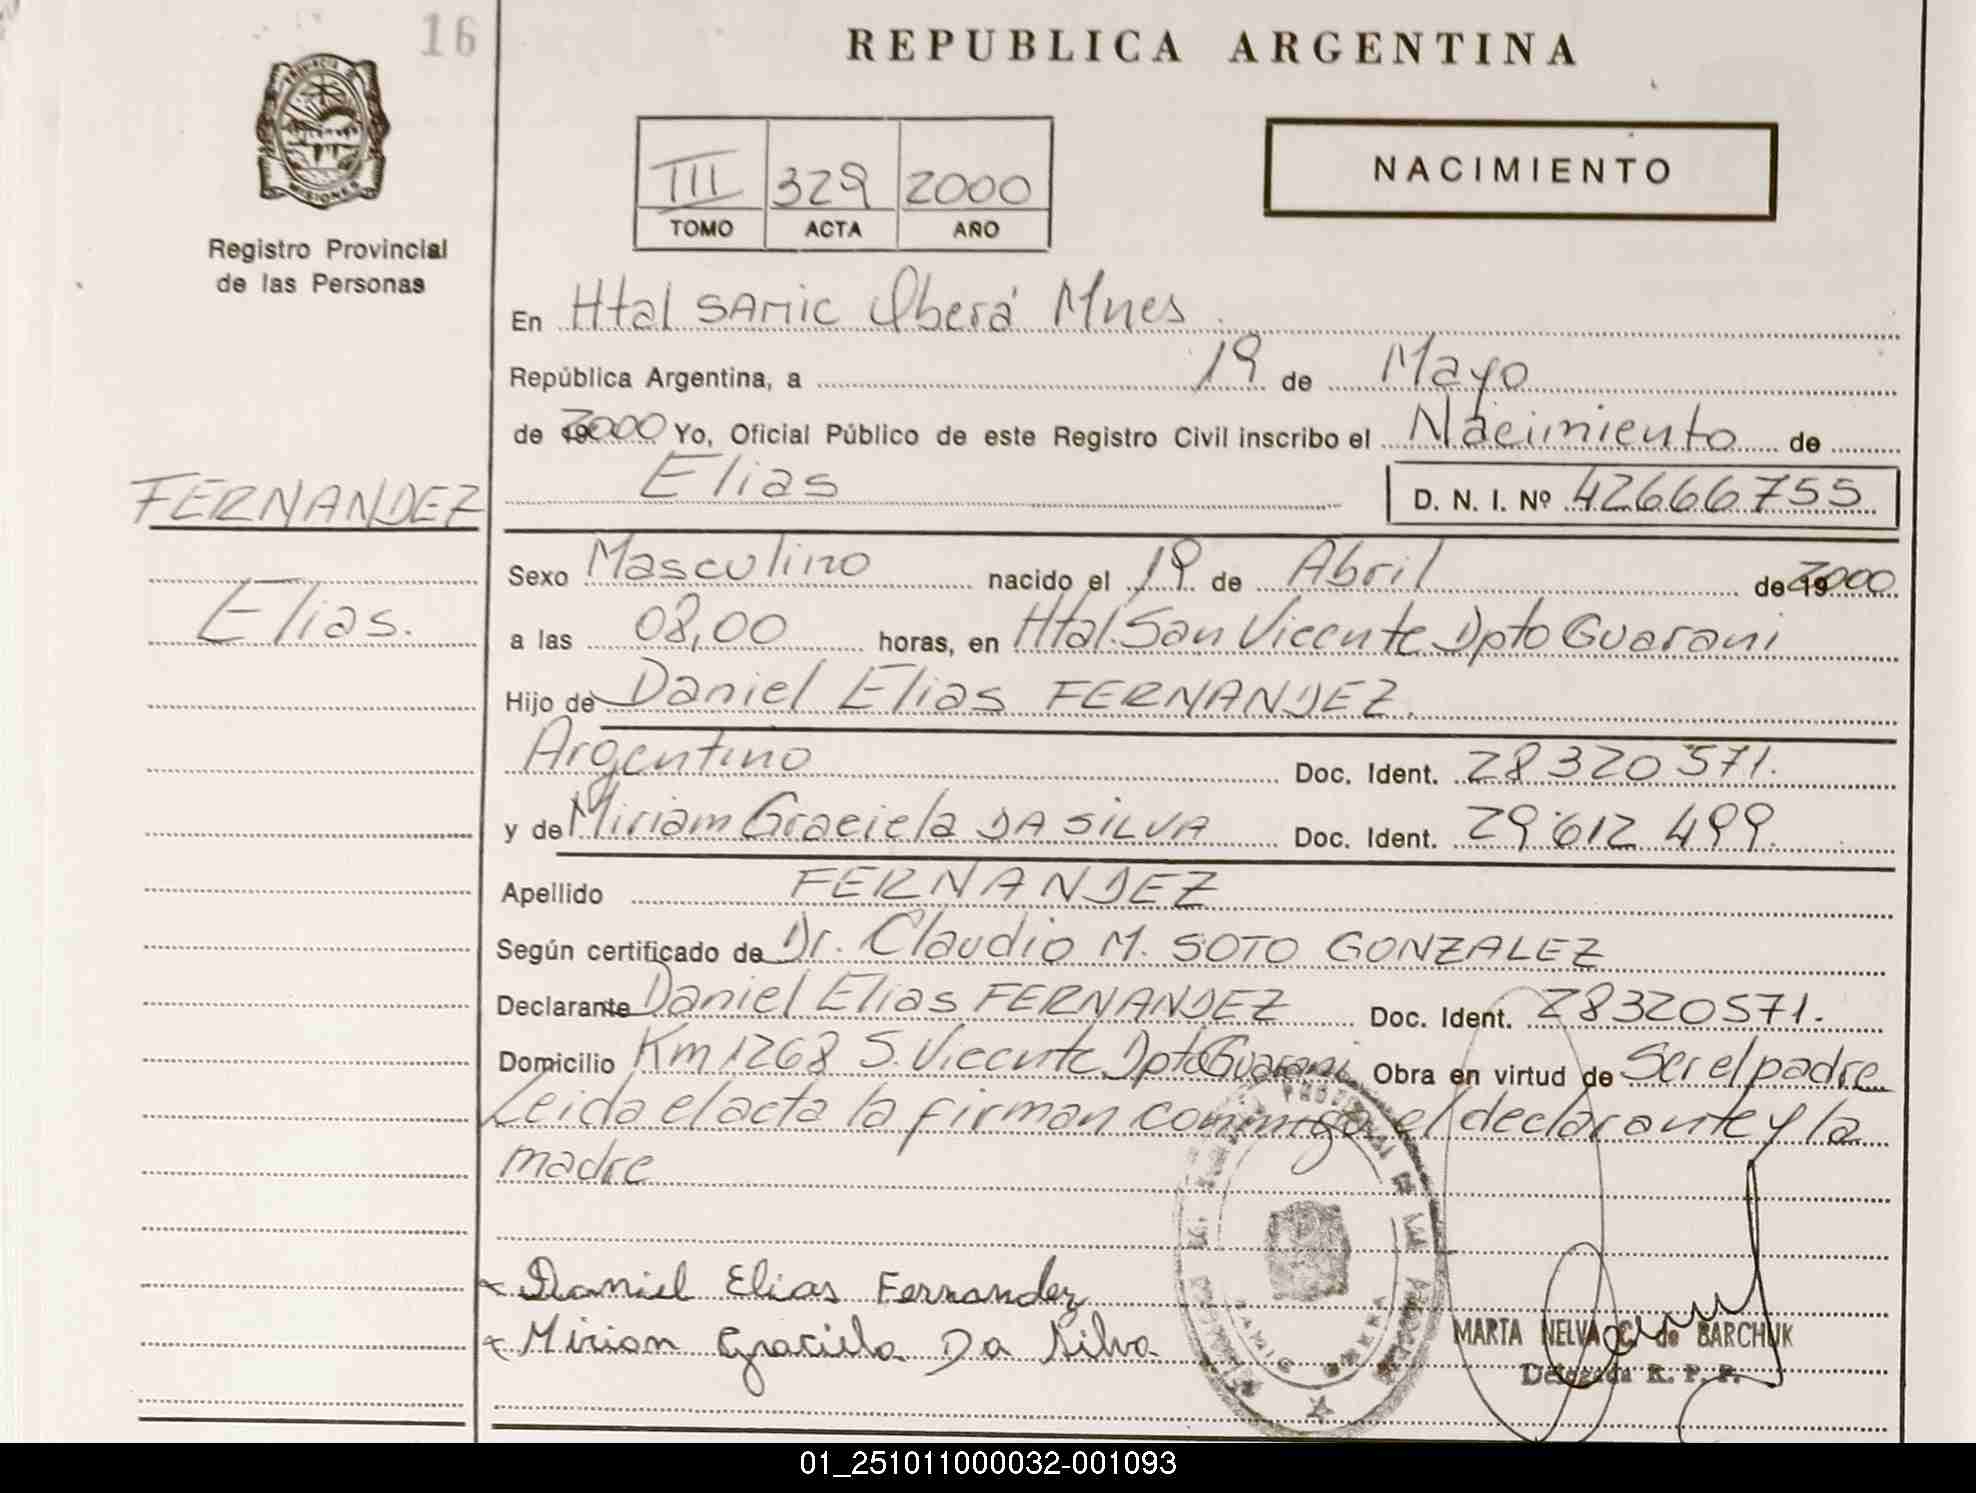 16
REPUBLICA ARGENTINA
PROVINCIA DE
MISIONES
Registro Provincial
de las Personas
III 329 2000
TOMO ACTA AÑO
NACIMIENTO
En Htal SAMIC Oberá Mnes.
República Argentina, a 19 de Mayo
de 2000 Yo, Oficial Público de este Registro Civil inscribo el Nacimiento de
Elias D. N. I. Nº 42666755
FERNANDEZ
Elias.
Sexo Masculino nacido el 19 de Abril de 2000
a las 08,00 horas, en Htal. San Vicente Dpto Guarani
Hijo de Daniel Elias FERNANDEZ.
Argentino Doc. Ident. 28320571.
y de Miriam Graciela DA SILVA Doc. Ident. 29.612.499.
Apellido FERNANDEZ
Según certificado de Dr. Claudio M. SOTO GONZALEZ
Declarante Daniel Elias FERNANDEZ Doc. Ident. 28320571.
Domicilio Km 1268 S. Vicente Dpto Guarani Obra en virtud de Ser el padre
Leida el acta la firman conmigo el declarante y la
madre
Daniel Elias Fernandez
Mirian Graciela Da Silva
MARTA NELVA C. de BARCHUK
Delegada R. P. P.
01_251011000032-001093